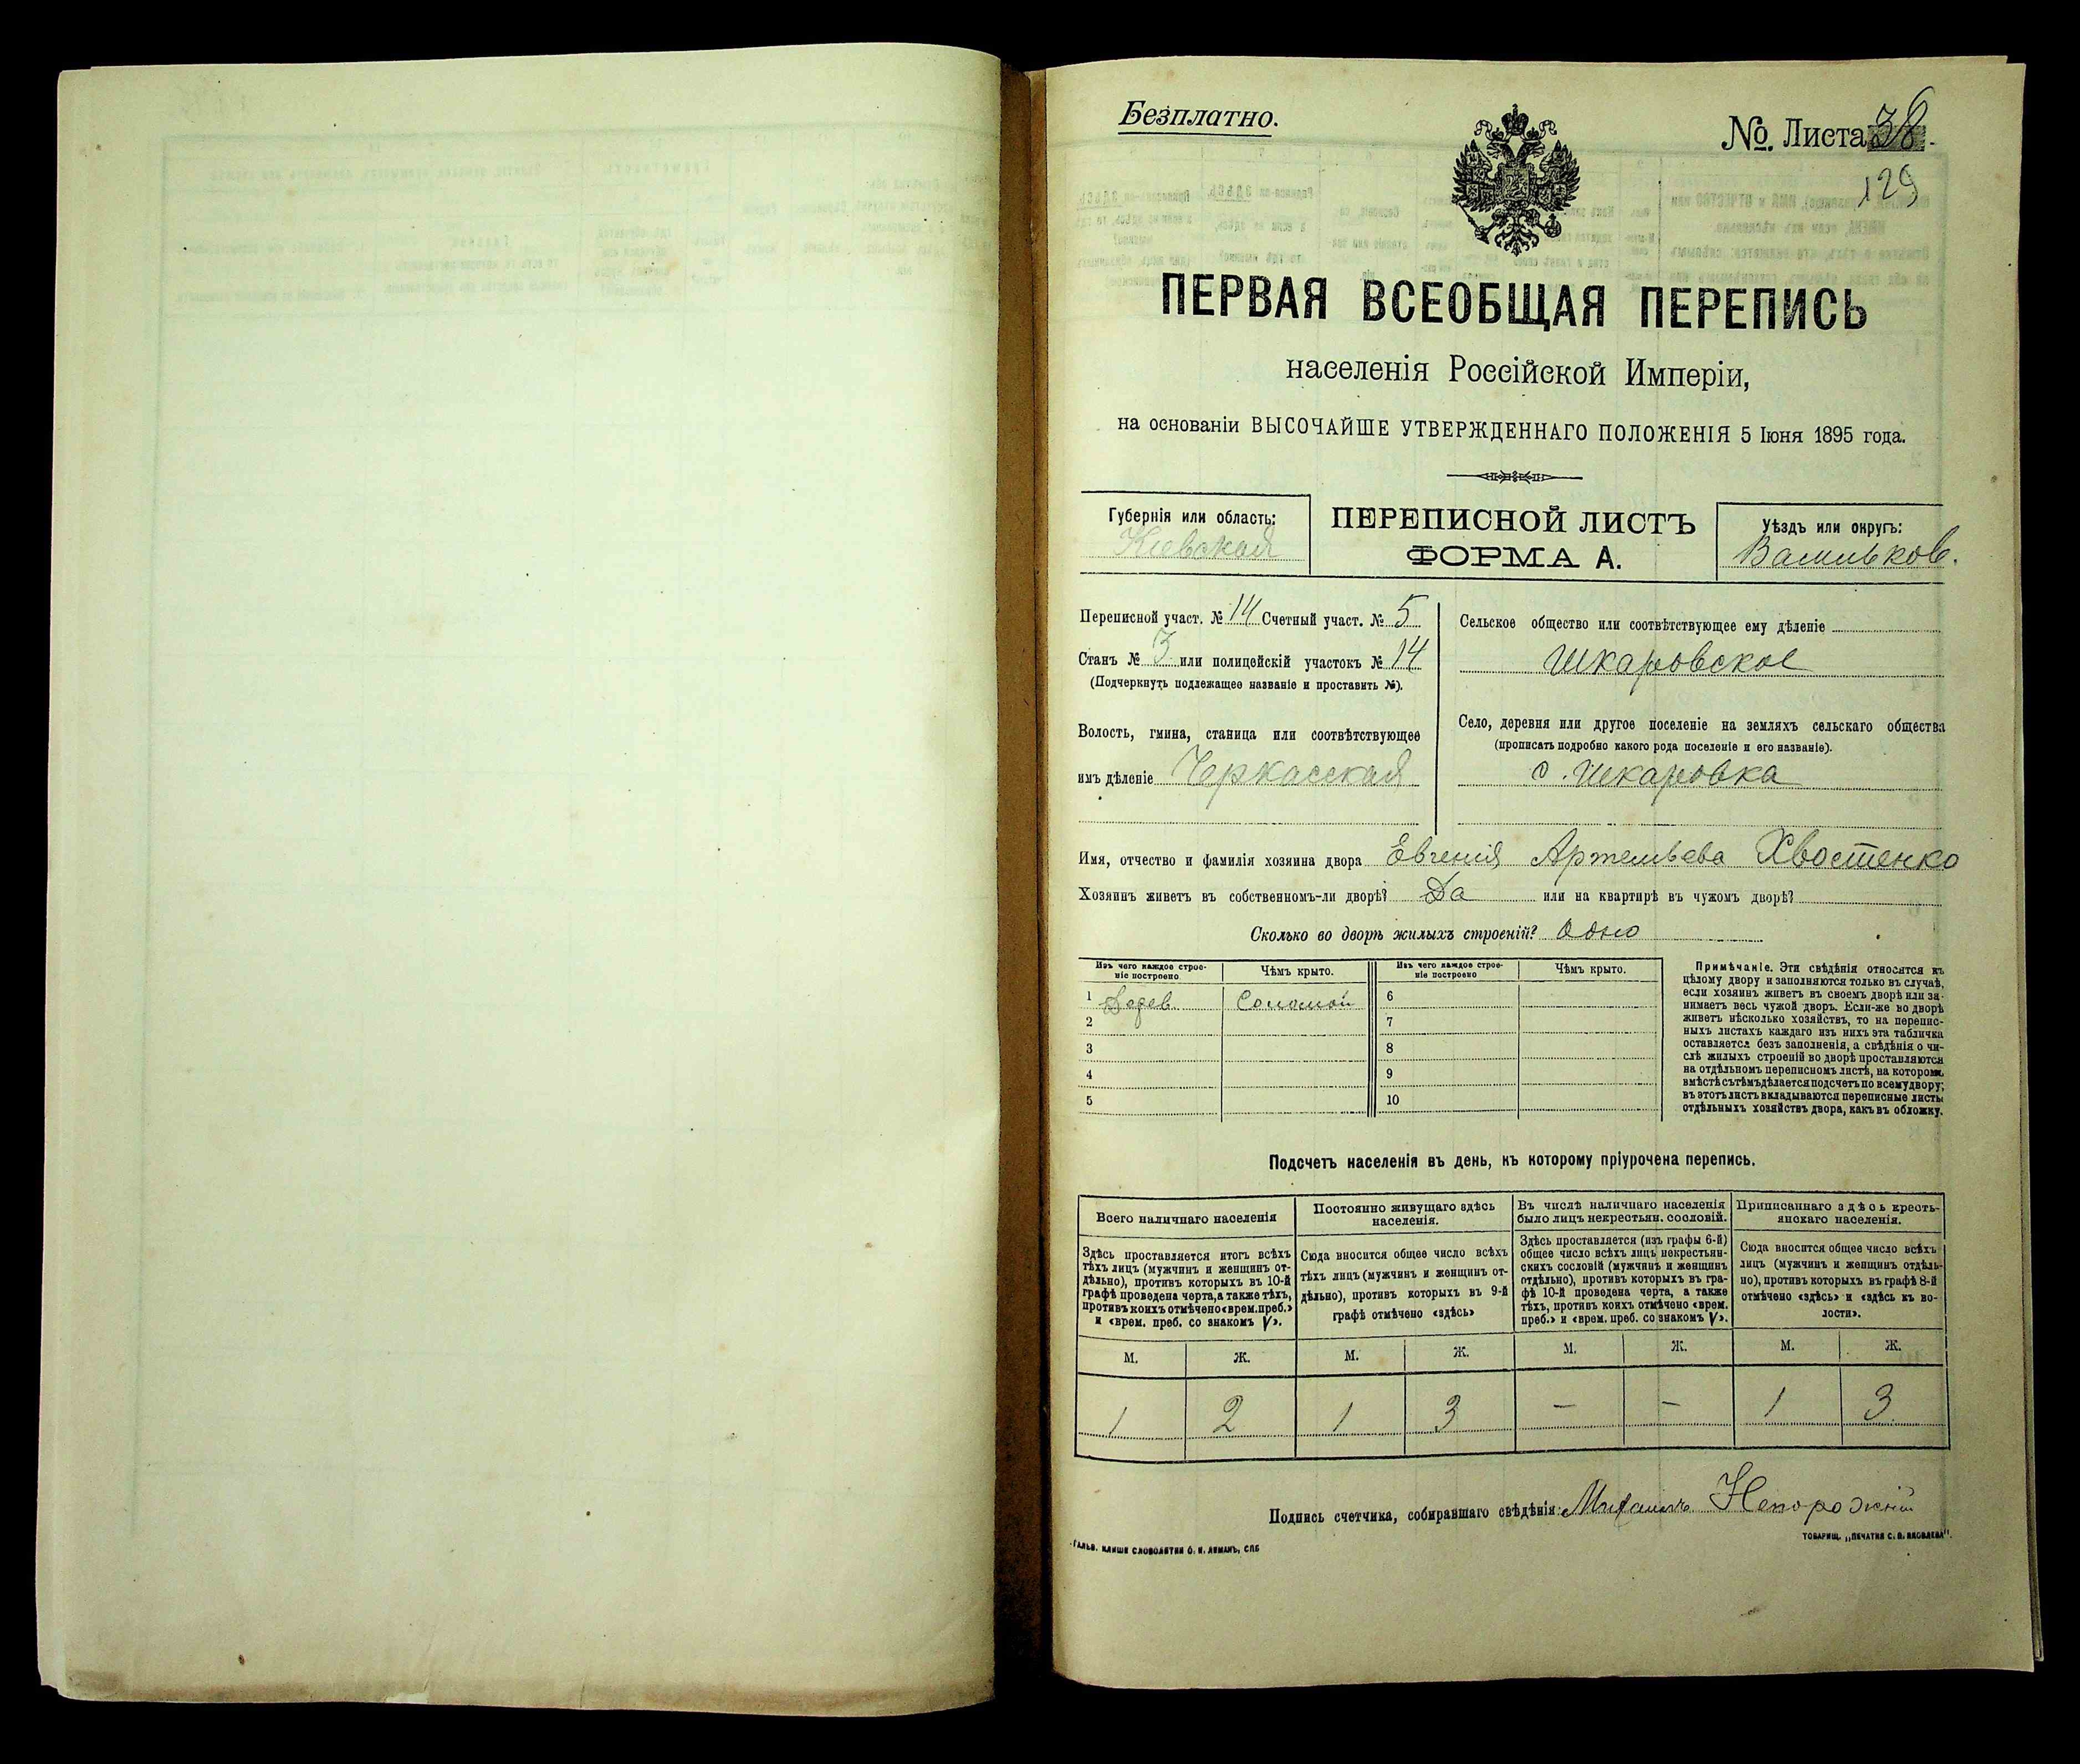 Безплатно.
№. Листа 38.
129
ПЕРВАЯ ВСЕОБЩАЯ ПЕРЕПИСЬ
населенія Россійской Имперіи,
на основаніи ВЫСОЧАЙШЕ УТВЕРЖДЕННАГО ПОЛОЖЕНІЯ 5 Іюня 1895 года.
Губернія или область:
Кіевская
ПЕРЕПИСНОЙ ЛИСТЪ
ФОРМА А.
Уѣздъ или округъ:
Васильков.
Переписной участ. № 14 Счетный участ. № 5
Станъ № 3 или полицейскій участокъ № 14
(Подчеркнуть подлежащее названіе и проставить №).
Волость, гмина, станица или соотвѣтствующее
имъ дѣленіе Черкасская
Сельское общество или соотвѣтствующее ему дѣленіе
Шкаровское
Село, деревня или другое поселеніе на земляхъ сельскаго общества
(прописать подробно какого рода поселеніе и его названіе).
с. Шкаровка
Имя, отчество и фамилія хозяина двора Евгенія Артемьева Хвостенко
Хозяинъ живетъ въ собственномъ-ли дворѣ? Да или на квартирѣ въ чужомъ дворѣ?
Сколько во дворѣ жилыхъ строеній? Одно
Изъ чего каждое строе-
ніе построено
Чѣмъ крыто.
1 Дерев. Соломой
2
3
4
5
Изъ чего каждое строе-
ніе построено
Чѣмъ крыто.
6
7
8
9
10
Примѣчаніе. Эти свѣдѣнія относятся къ
цѣлому двору и заполняются только въ случаѣ,
если хозяинъ живетъ въ своемъ дворѣ или за-
нимаетъ весь чужой дворъ. Если-же во дворѣ
живетъ нѣсколько хозяйствъ, то на перепис-
ныхъ листахъ каждаго изъ нихъ эта табличка
оставляется безъ заполненія, а свѣдѣнія о чи-
слѣ жилыхъ строеній во дворѣ проставляются
на отдѣльномъ переписномъ листѣ, на которомъ
вмѣстѣ съ тѣмъ дѣлается подсчетъ по всему двору;
въ этотъ листъ вкладываются переписные листы
отдѣльныхъ хозяйствъ двора, какъ въ обложку.
Подсчетъ населенія въ день, къ которому пріурочена перепись.
Всего наличнаго населенія
Здѣсь проставляется итогъ всѣхъ
тѣхъ лицъ (мужчинъ и женщинъ от-
дѣльно), противъ которыхъ въ 10-й
графѣ проведена черта, а также тѣхъ,
противъ коихъ отмѣчено «врем. преб.»
и «врем. преб. со знакомъ V».
Постоянно живущаго здѣсь
населенія.
Сюда вносится общее число всѣхъ
тѣхъ лицъ (мужчинъ и женщинъ от-
дѣльно), противъ которыхъ въ 9-й
графѣ отмѣчено «здѣсь»
Въ числѣ наличнаго населенія
было лицъ некрестьян. сословій.
Здѣсь проставляется (изъ графы 6-й)
общее число всѣхъ лицъ некрестьян-
скихъ сословій (мужчинъ и женщинъ
отдѣльно), противъ которыхъ въ гра-
фѣ 10-й проведена черта, а также
тѣхъ, противъ коихъ отмѣчено «врем.
преб.» и «врем. преб. со знакомъ V».
Приписаннаго здѣсь кресть-
янскаго населенія.
Сюда вносится общее число всѣхъ
лицъ (мужчинъ и женщинъ отдѣль-
но), противъ которыхъ въ графѣ 8-й
отмѣчено «здѣсь» и «здѣсь къ во-
лости».
М. Ж. М. Ж. М. Ж. М. Ж.
1 2 1 3 – – 1 3
Подпись счетчика, собиравшаго свѣдѣнія: Михаилъ Непорожній
ГАЛЬВ. КЛИШЕ СЛОВОЛИТНИ О. И. ЛЕМАНЪ, СПБ
ТОВАРИЩ. „ПЕЧАТНЯ С. П. ЯКОВЛЕВА“.